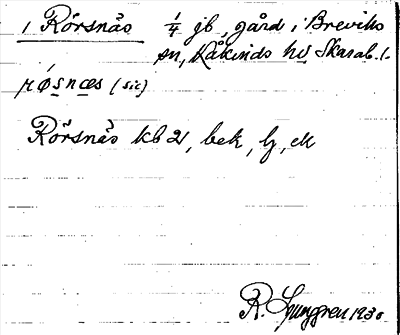 1 Rörsnäs 1/4 jb, gård i Breviks
sn, Kåkinds hd Skarab. l.
rǿsnæs (sic)
Rörsnäs kb 2, bek, lj, ck
R. Ljunggren 1930